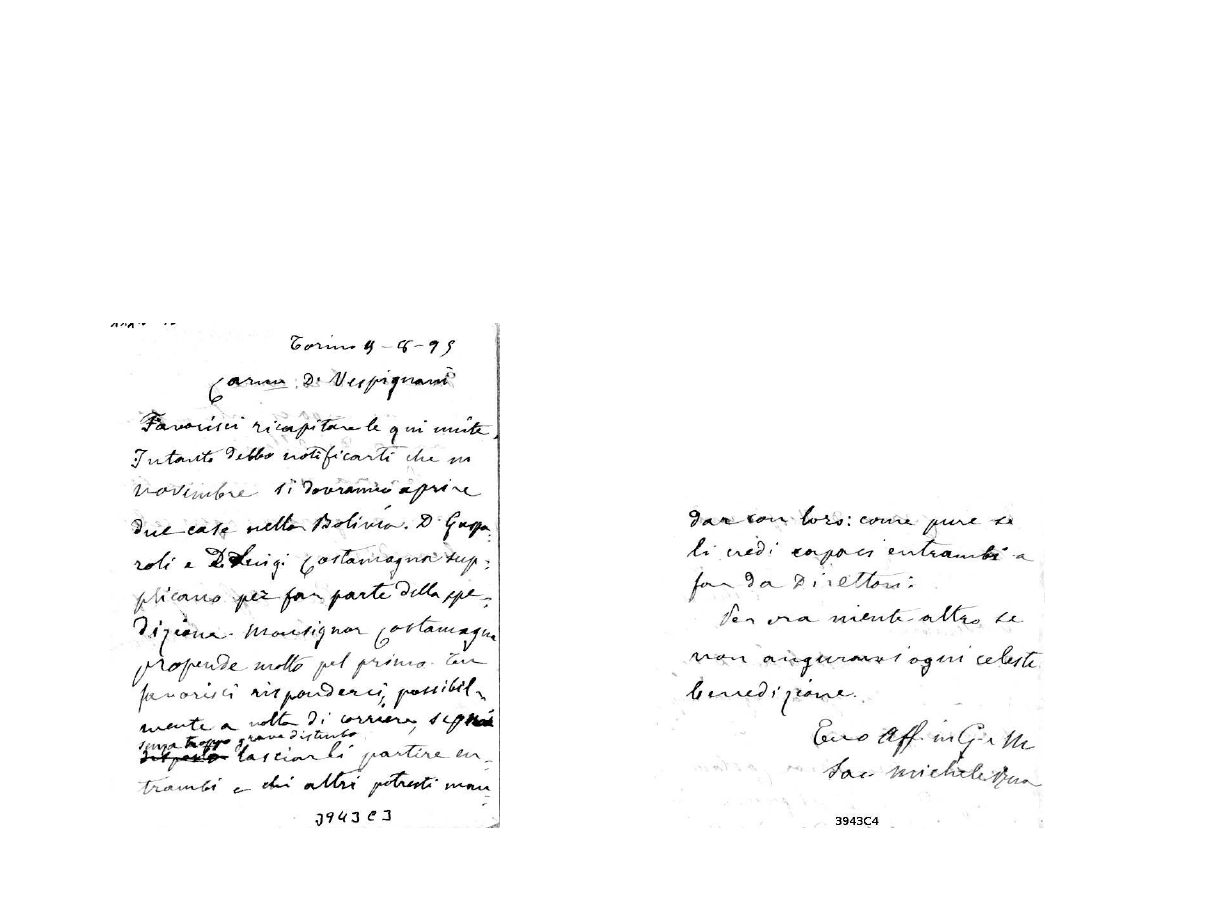 Torino 9-8-95
Carmo D. Vespignani
Favorisci ricapitare le qui unite.
Intanto debbo notificarti che in
novembre si dovranno aprire
due case nella Bolivia. D. Gaspa-
roli e D. Luigi Costamagna sup-
plicano per far parte della spe-
dizione. Monsignor Costamagna
propende molto pel primo. Tu
favorisci risponderci, possibil-
mente a volta di corriere, se puoi
senza troppo grave disturbo
lasciarli partire en-
trambi e chi altri potresti man-
3943C3
dar con loro: come pure se
li credi capaci entrambi a
far da Direttori:
Per ora niente altro se
non augurarvi ogni celeste
benedizione.
Tuo Aff. in G. e M
Sac Michele Rua
3943C4